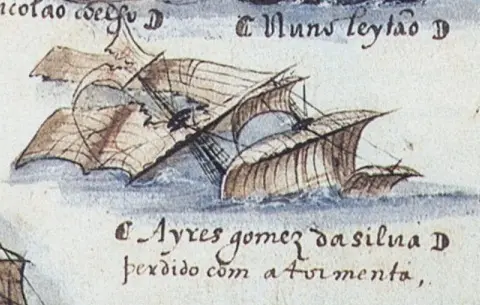 nicolao coelho D
C Nuno leytão D
C Ayres gomez da silua D
perdido com a tormenta,